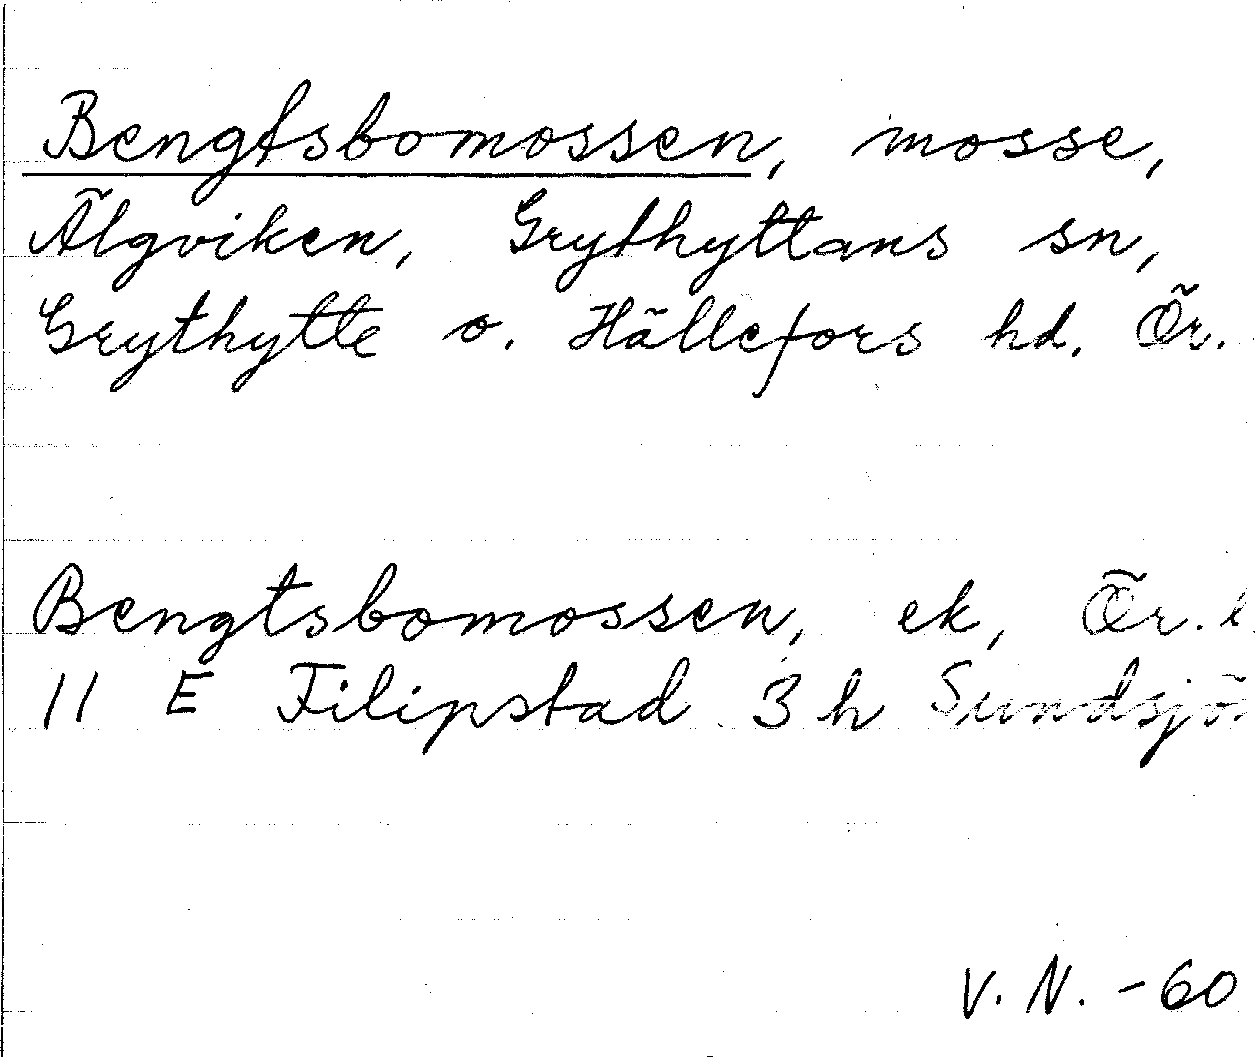 Bengtsbomossen, mosse,
Älgviken, Grythyttans sn,
Grythytte o. Hällefors hd. Ör.
Bengtsbomossen, ek, Ör. l.
11 E Filipstad 3 h Sundsjö
V. N. -60